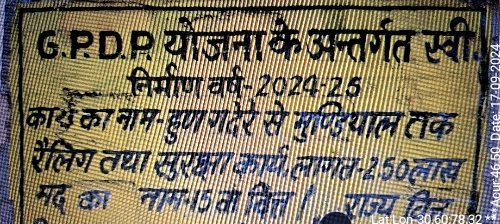 G.P.D.P. योजना के अन्तर्गत स्वी.
निर्माण वर्ष-2024-25
कार्य का नाम- हुण गदेरे से मुण्डियाल तक
रैलिंग तथा सुरक्षा कार्य, लागत-2.50 लाख
मद का नाम-15 वां वित्त / राज्य वित्त
Lat Lon 30.60:78.32
Date: 7-09-2024